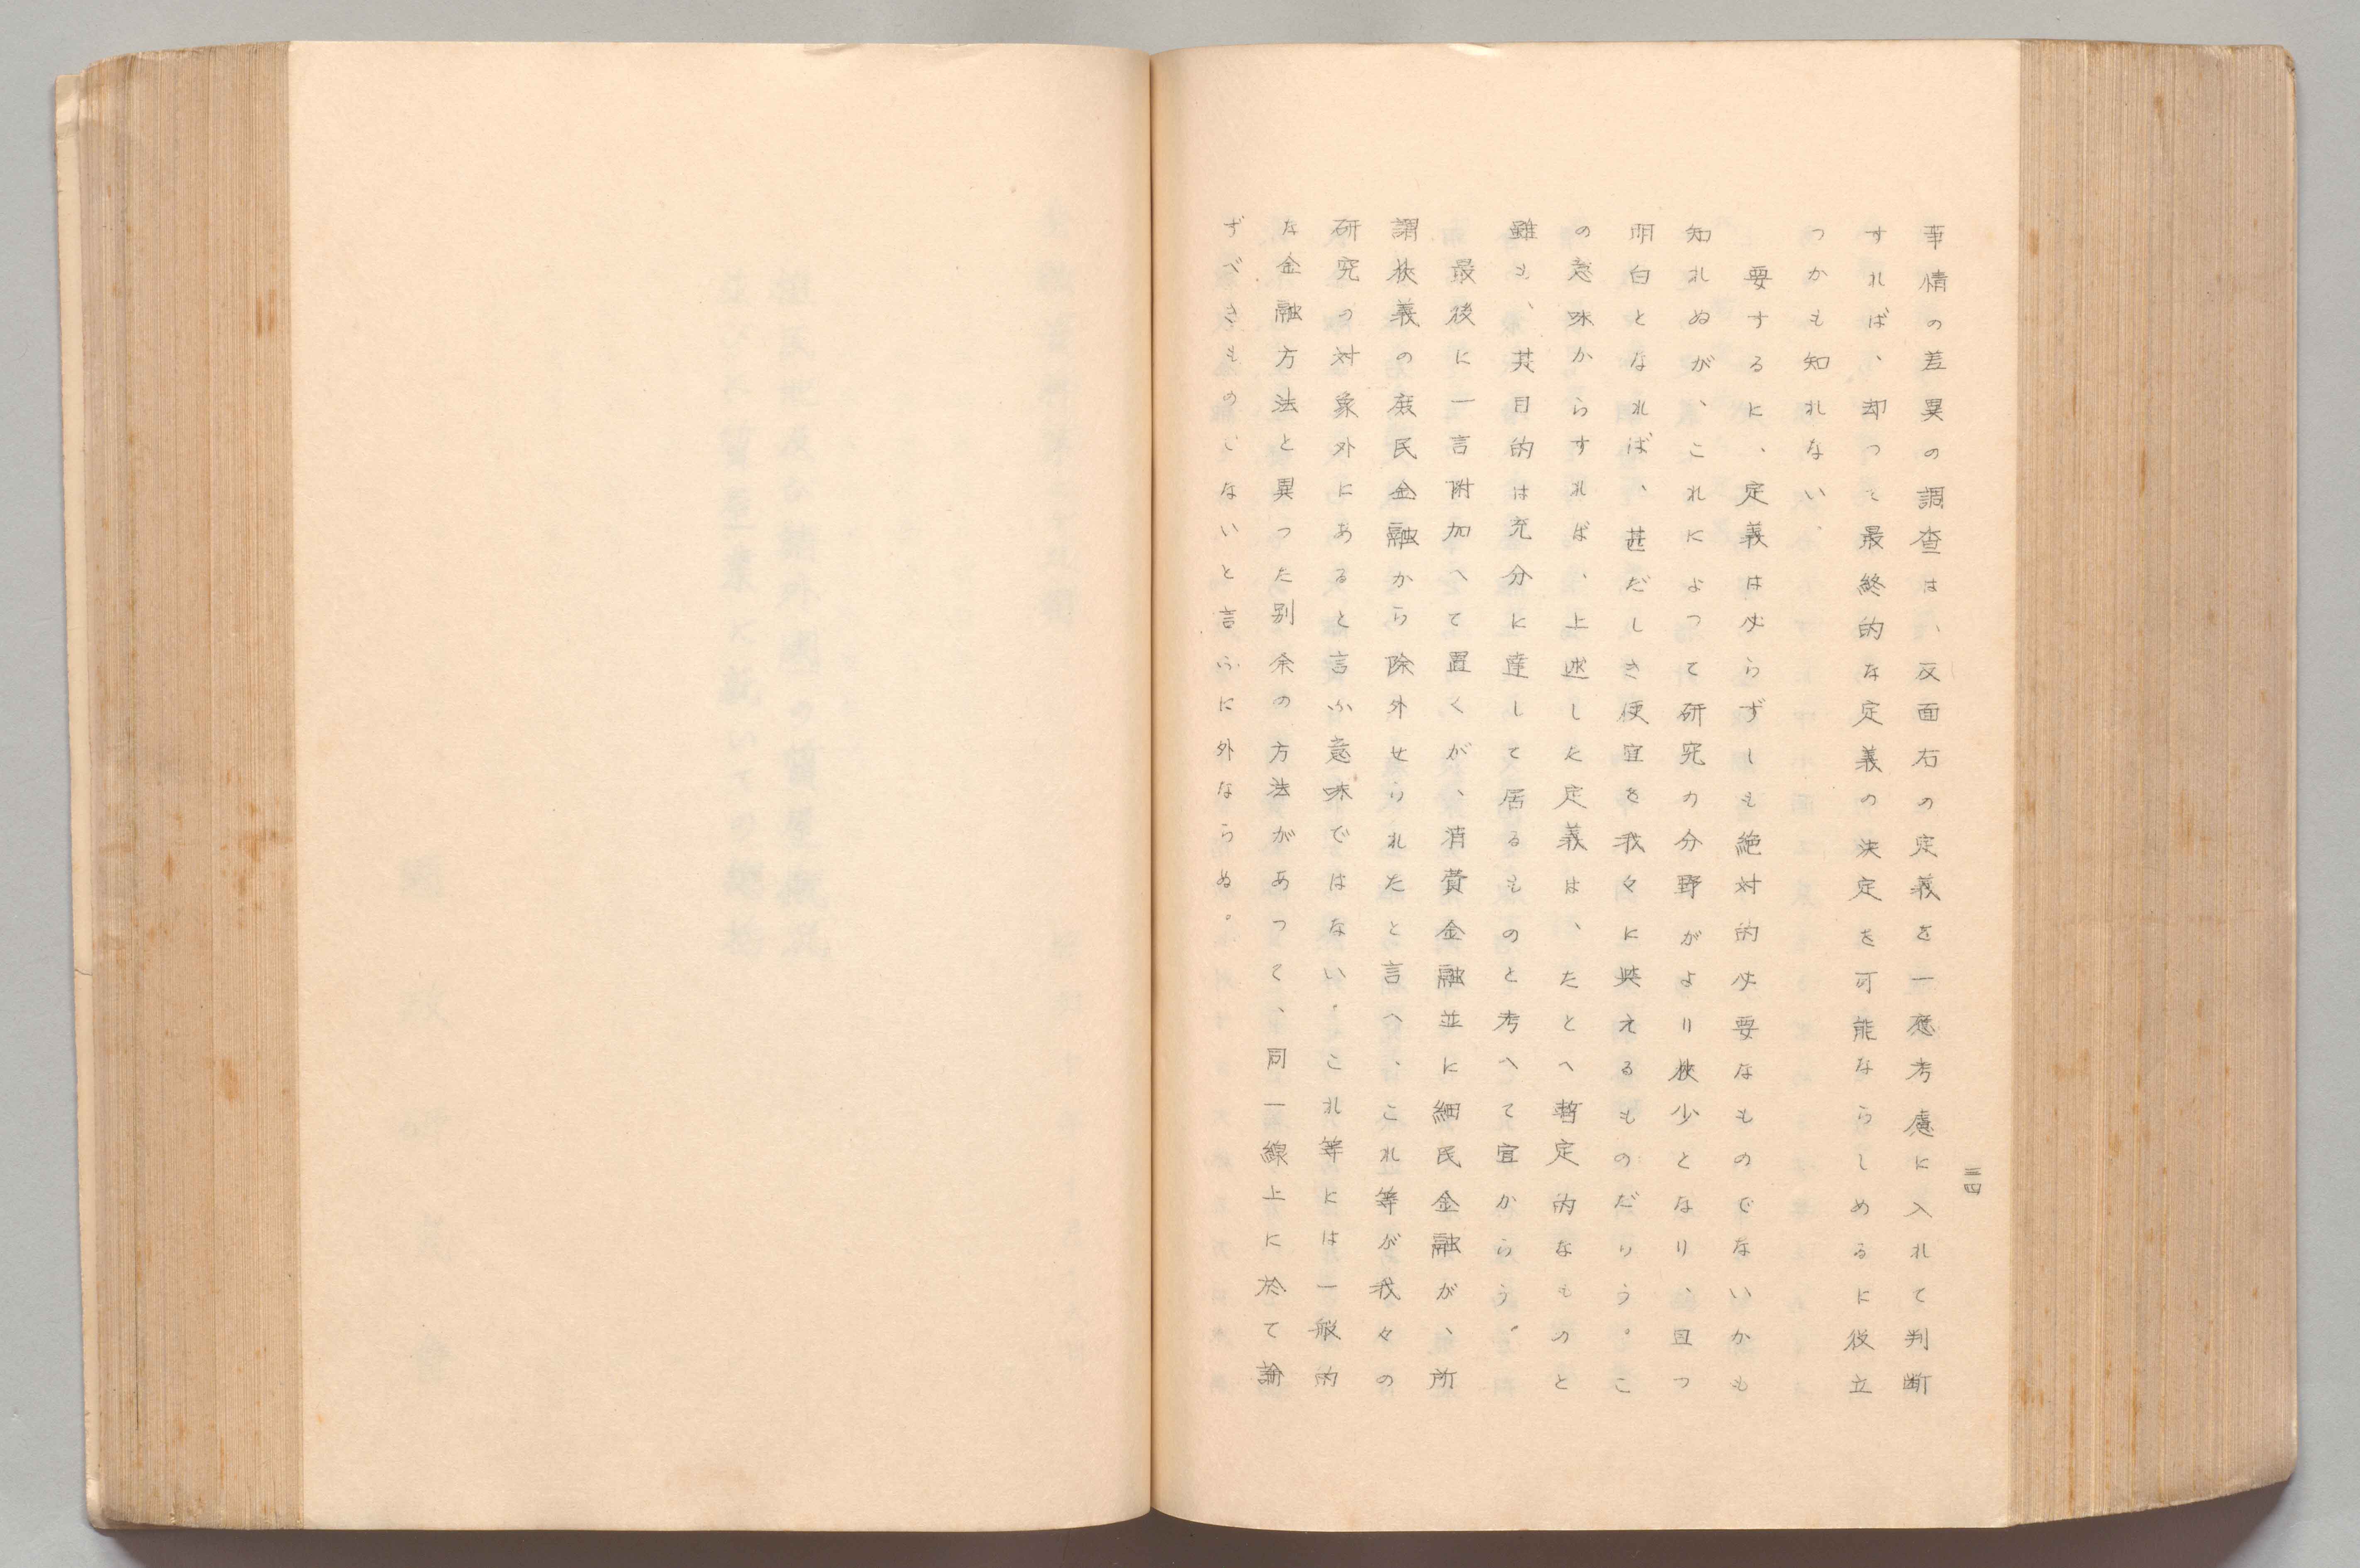 三四
事情の差異の調査は、反面右の定義を一応考慮に入れて判断
すれば、却って最終的な定義の決定を可能ならしめるに役立
つかも知れない。
要するに、定義は必らずしも絶対的必要なものでないかも
知れぬが、これによって研究の分野がより狭少となり、且つ
明白となれば、甚だしき便宜を我々に与えるものだらう。こ
の意味からすれば、上述した定義は、たとへ暫定的なものと
雖も、其目的は充分に達して居るものと考へて宜からう。
最後に一言附加へて置くが、消費金融並に細民金融が、所
謂狭義の庶民金融から除外せられたと言へ、これ等が我々の
研究の対象外にあると言ふ意味ではない。これ等には一般的
な金融方法と異った別余の方法があって、同一線上に於て論
ずべきものでないと言ふに外ならぬ。